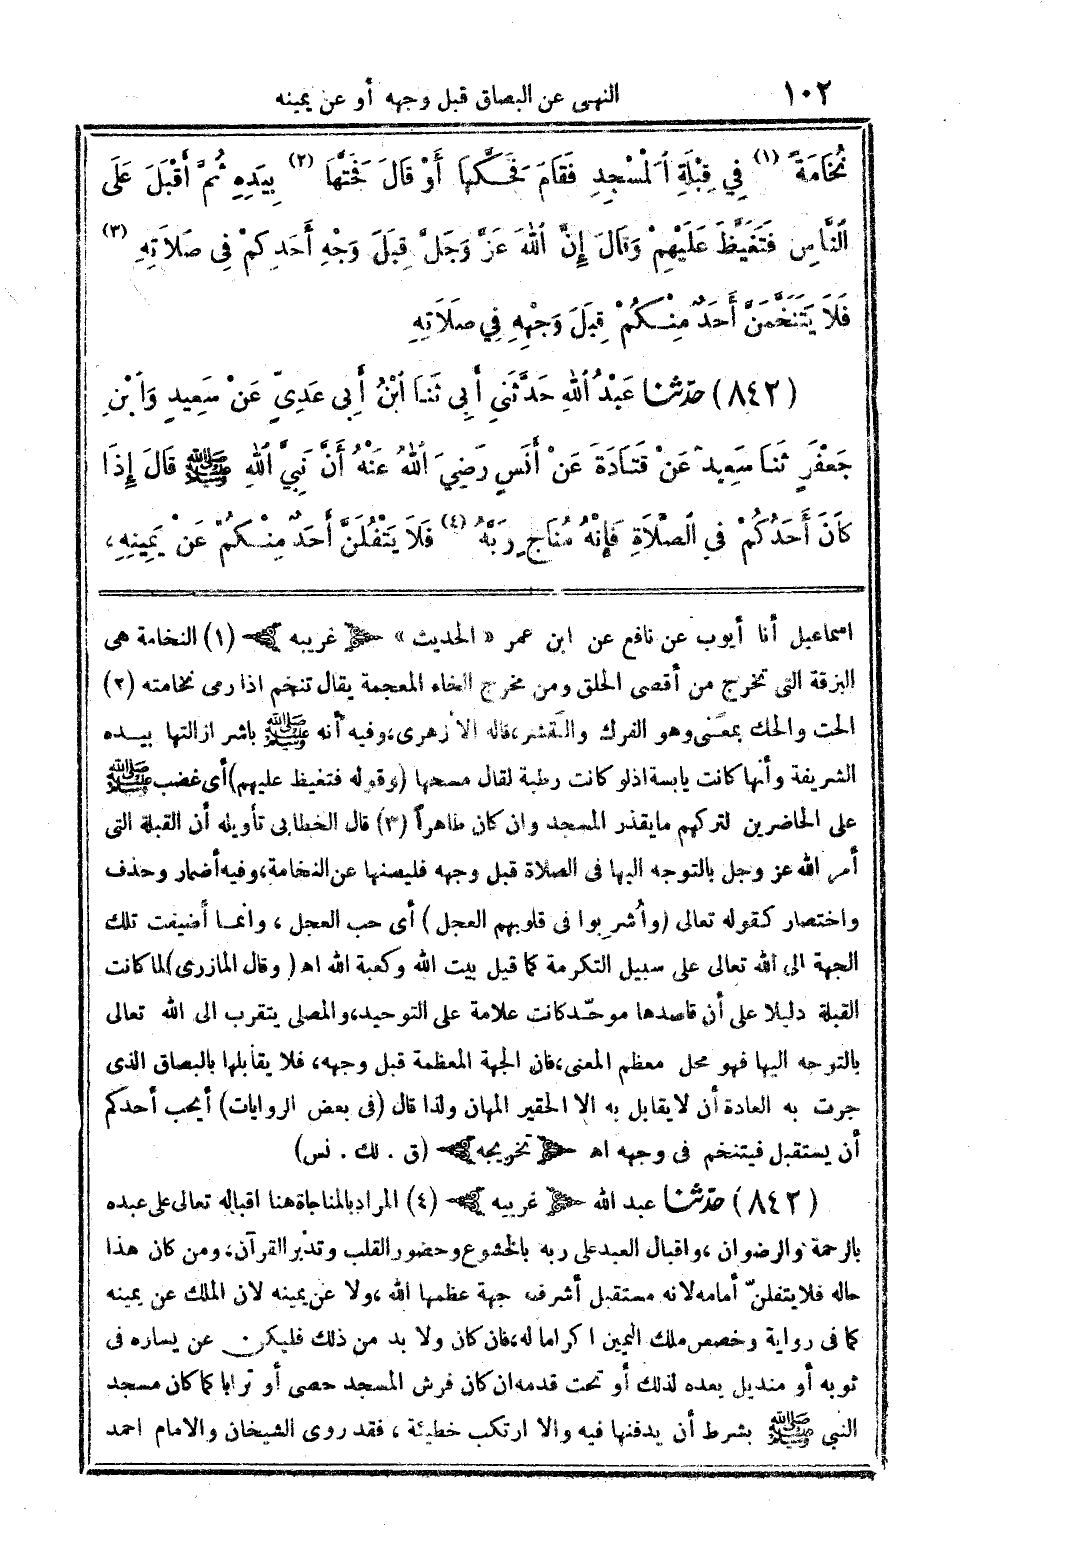 ١٠٢ النهى عن البصاق قبل وجهه أو عن يمينه
نُخَامَةً (١) فِي قِبْلَةِ ٱلْمَسْجِدِ فَقَامَ فَحَكَّهَا أَوْ قَالَ فَحَتَّهَا (٢) بِيَدِهِ ثُمَّ أَقْبَلَ عَلَى
ٱلنَّاسِ فَتَغَيَّظَ عَلَيْهِمْ وَقَالَ إِنَّ ٱللهَ عَزَّ وَجَلَّ قِبَلَ وَجْهِ أَحَدِكُمْ فِى صَلَاتِهِ (٣)
فَلَا يَتَنَخَّمَنَّ أَحَدٌ مِنْكُمْ قِبَلَ وَجْهِهِ فِي صَلَاتِهِ
(٨٤٢) حدّثنا عَبْدُ ٱللهِ حَدَّثَنِي أَبِى ثَنَا ٱبْنُ أَبِى عَدِيٍّ عَنْ سَعِيدٍ وَٱبْنِ
جَعْفَرٍ ثَنَا سَعِيدٌ عَنْ قَتَادَةَ عَنْ أَنَسٍ رَضِيَ ٱللهُ عَنْهُ أَنَّ نَبِيَّ ٱللهِ ﷺ قَالَ إِذَا
كَانَ أَحَدُكُمْ فِي ٱلصَّلَاةِ فَإِنَّهُ مُنَاجٍ رَبَّهُ (٤) فَلَا يَتْفُلَنَّ أَحَدٌ مِنْكُمْ عَنْ يَمِينِهِ،
اسماعيل أنا أيوب عن نافع عن ابن عمر « الحديث » ﴿ غريبه ﴾ (١) النخامة هى
البزقة التى تخرج من أقصى الحلق ومن مخرج الخاء المعجمة يقال تنخم اذا رمى نخامته (٢)
الحت والحك بمعنى وهو الفرك والتقشر، قاله الأزهرى، وفيه أنه ﷺ باشر ازالتها بيده
الشريفة وأنها كانت يابسة اذلو كانت رطبة لقال مسحها (وقوله فتغيظ عليهم) أى غضب ﷺ
على الحاضرين لتركهم مايقذر المسجد وان كان طاهراً (٣) قال الخطابى تأويله أن القبلة التى
أمر الله عز وجل بالتوجه اليها فى الصلاة قبل وجهه فليصنها عن النخامة، وفيه أضمار وحذف
واختصار كقوله تعالى (وأُشربوا فى قلوبهم العجل) أى حب العجل، وانما أضيفت تلك
الجهة الى الله تعالى على سبيل التكرمة كما قيل بيت الله وكعبة الله اه (وقال المازرى) لما كانت
القبلة دليلا على أن قاصدها موحّد كانت علامة على التوحيد، والمصلى يتقرب الى الله تعالى
بالتوجه اليها فهو محل معظم المعنى، فان الجهة المعظمة قبل وجهه، فلا يقابلها بالبصاق الذى
جرت به العادة أن لا يقابل به الا الحقير المهان ولذا قال (فى بعض الروايات) أيحب أحدكم
أن يستقبل فيتنخم فى وجهه اه ﴿ تخريجه ﴾ (ق . لك . نس)
(٨٤٢) حدّثنا عبد الله ﴿ غريبه ﴾ (٤) المراد بالمناجاة هنا اقباله تعالى على عبده
بالرحمة والرضوان، واقبال العبد على ربه بالخشوع وحضور القلب وتدبر القرآن، ومن كان هذا
حاله فلا يتفلنّ أمامه لانه مستقبل أشرف جهة عظمها الله، ولا عن يمينه لان الملك عن يمينه
كما فى رواية وخصص ملك اليمين اكراما له، فان كان ولا بد من ذلك فليكن عن يساره فى
ثوبه أو منديل يعده لذلك أو تحت قدمه ان كان فرش المسجد حصى أو ترابا كما كان مسجد
النبي ﷺ بشرط أن يدفنها فيه والا ارتكب خطيئة، فقد روى الشيخان والامام احمد